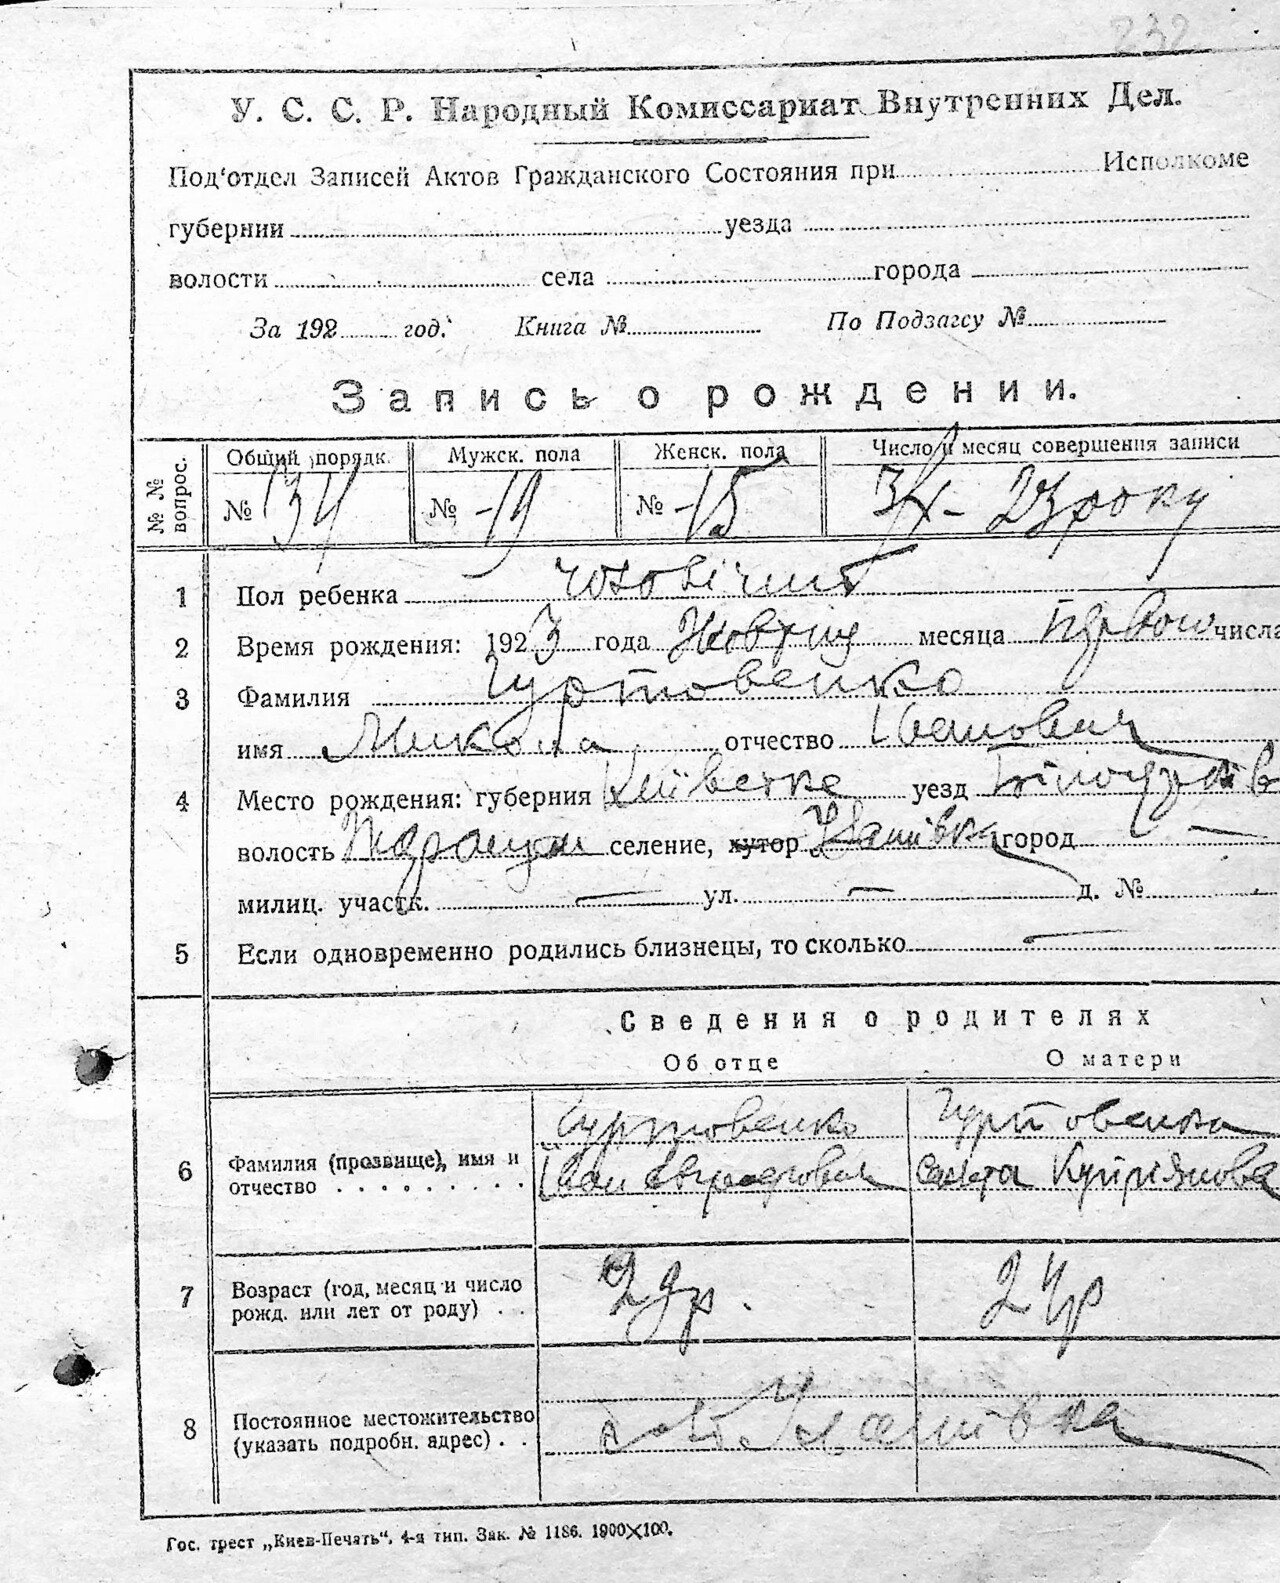 232
У. С. С. Р. Народный Комиссариат Внутренних Дел.
Под'отдел Записей Актов Гражданского Состояния при Исполкоме
губернии уезда
волости села города
За 192 год. Книга № По Подзагсу №
Запись о рождении.
№ № вопрос. Общий порядк. Мужск. пола Женск. пола Число и месяц совершения записи
№ 34 № 19 № 15 3/X- 23 року
1 Пол ребенка чоловічий
2 Время рождения: 1923 года Жовтня месяца первого числа
3 Фамилия Гуртовенко
имя Микола отчество Іванович
4 Место рождения: губерния Київська уезд Білоцерків
волость селение, хутор Іванівка город —
милиц. участк. — ул. — д. №
5 Если одновременно родились близнецы, то сколько —
Сведения о родителях
Об отце О матери
Гуртовенко Гуртовенко
6 Фамилия (прозвище), имя и отчество Іван
7 Возраст (год, месяц и число рожд. или лет от роду) 24р
8 Постоянное местожительство (указать подробн. адрес) Іванівка
Гос. трест „Киев-Печать“. 4-я тип. Зак. № 1186. 1900×100.